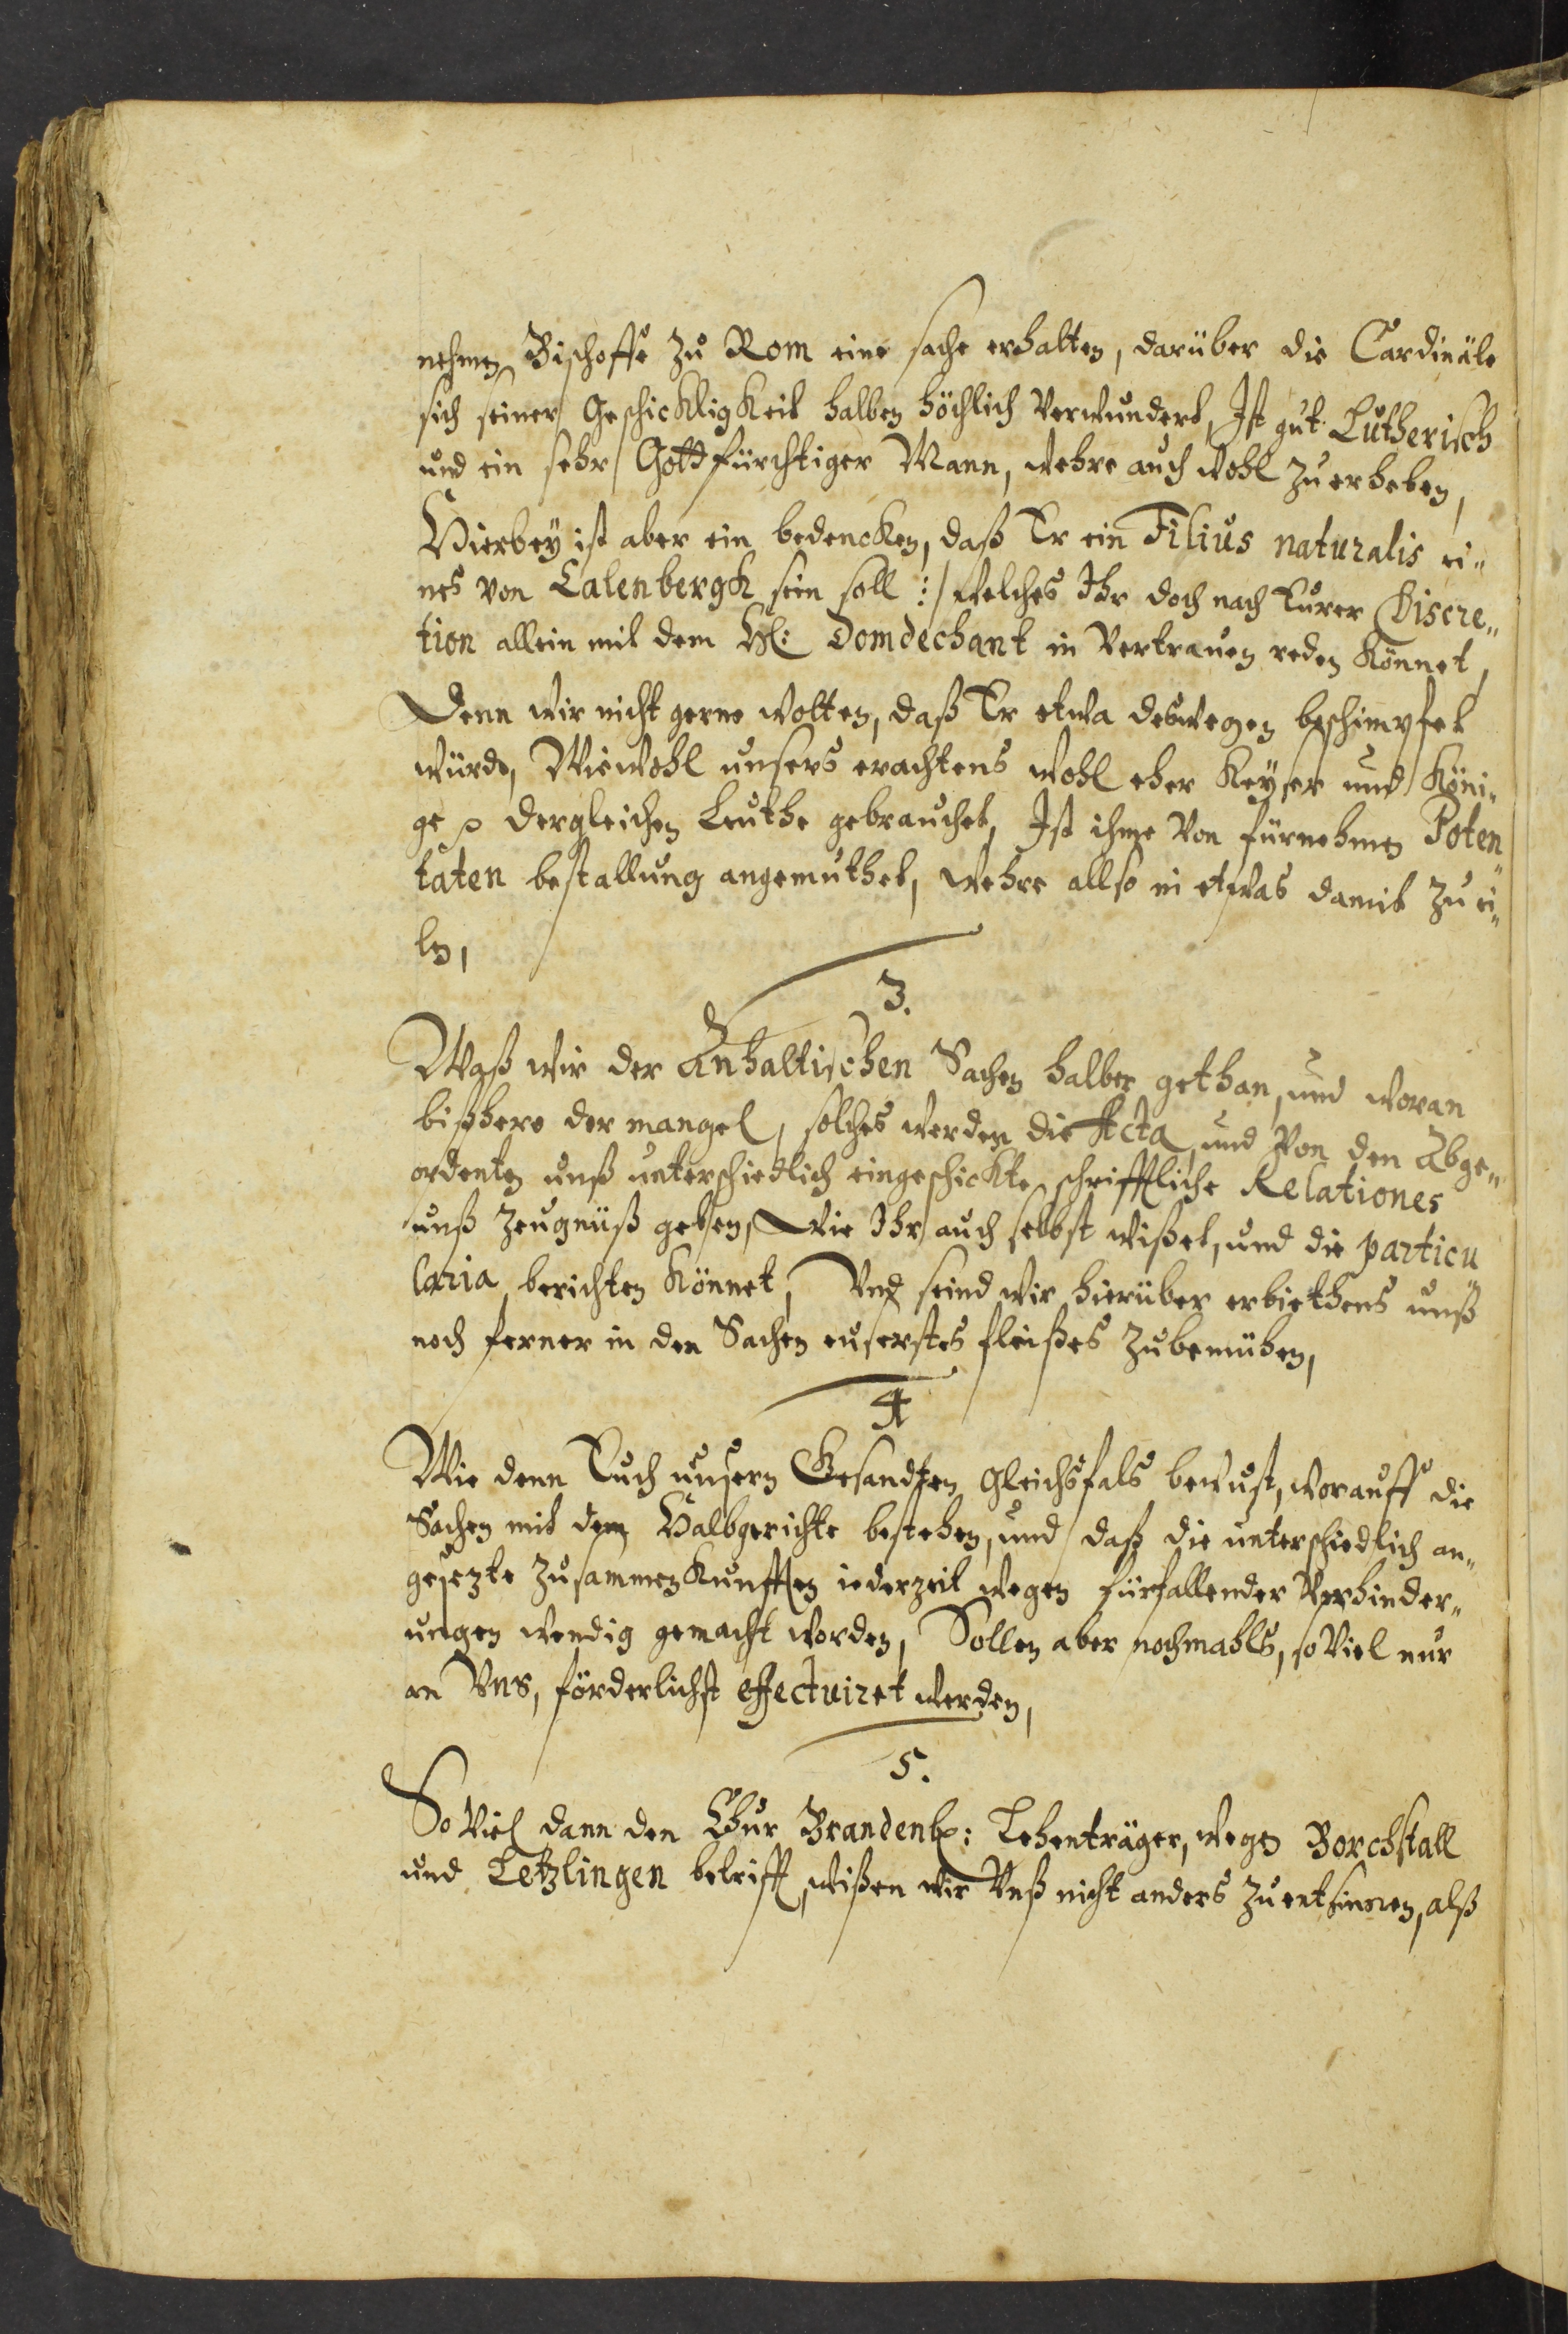 nehmen Bischoffe zu Rom eine sache erhalten, darüber die Cardinäle
sich seiner Geschickligkeit halben höchlich verwundert, Ist gut Lutherisch
und ein sehr Gottfürchtiger Mann, wehre auch wohl zu erheben,
Hierbey ist aber ein bedencken, daß Er ein Filius naturalis ei„
nes von Calenbergk sein soll :/ welches Ihr doch nach Eurer Discre„
tion allein mit dem H: Domdechant in Vertrauen reden könnet,
Denn wir nicht gerne wolten, daß Er etwa deswegen beschimpfet
würde, Wiewohl unsers erachtens wohl eher Keyser und Köni„
ge dergleichen Leuthe gebrauchet, Ist ihme von fürnehmen Poten„
taten bestallung angemuthet, wehre allso in etwas damit zu ei„
len,
3.
Waß wir der Anhaltischen Sachen halber gethan, und woran
bißhero der mangel, solches werden die Acta und von den Abge„
ordenten unß unterschiedlich eingeschickte schrifftliche Relationes
unß Zeugnüß geben, Wie Ihr auch selbst wißet, und die particu„
laria berichten könnet, Vnd seind wir hierüber erbiethens unß
noch ferner in den Sachen euserstes fleißes zubemühen,
4
Wie denn Euch unsern Gesandten gleichsfals bewust, worauff die
Sachen mit dem Halbgerichte bestehen, und daß die unterschiedlich an„
gesezte Zusammenkunfften iederzeit wegen fürfallender Verhinder„
ungen wendig gemacht worden, Sollen aber nochmahls, so viel nur
an Vns, förderlichst effectuiret werden,
5.
So viel dann den Chur Brandenb: Lehenträger, wegen Borchstall
und Letzlingen betrifft, wißen wir Vnß nicht anders zu entsinnen, alß